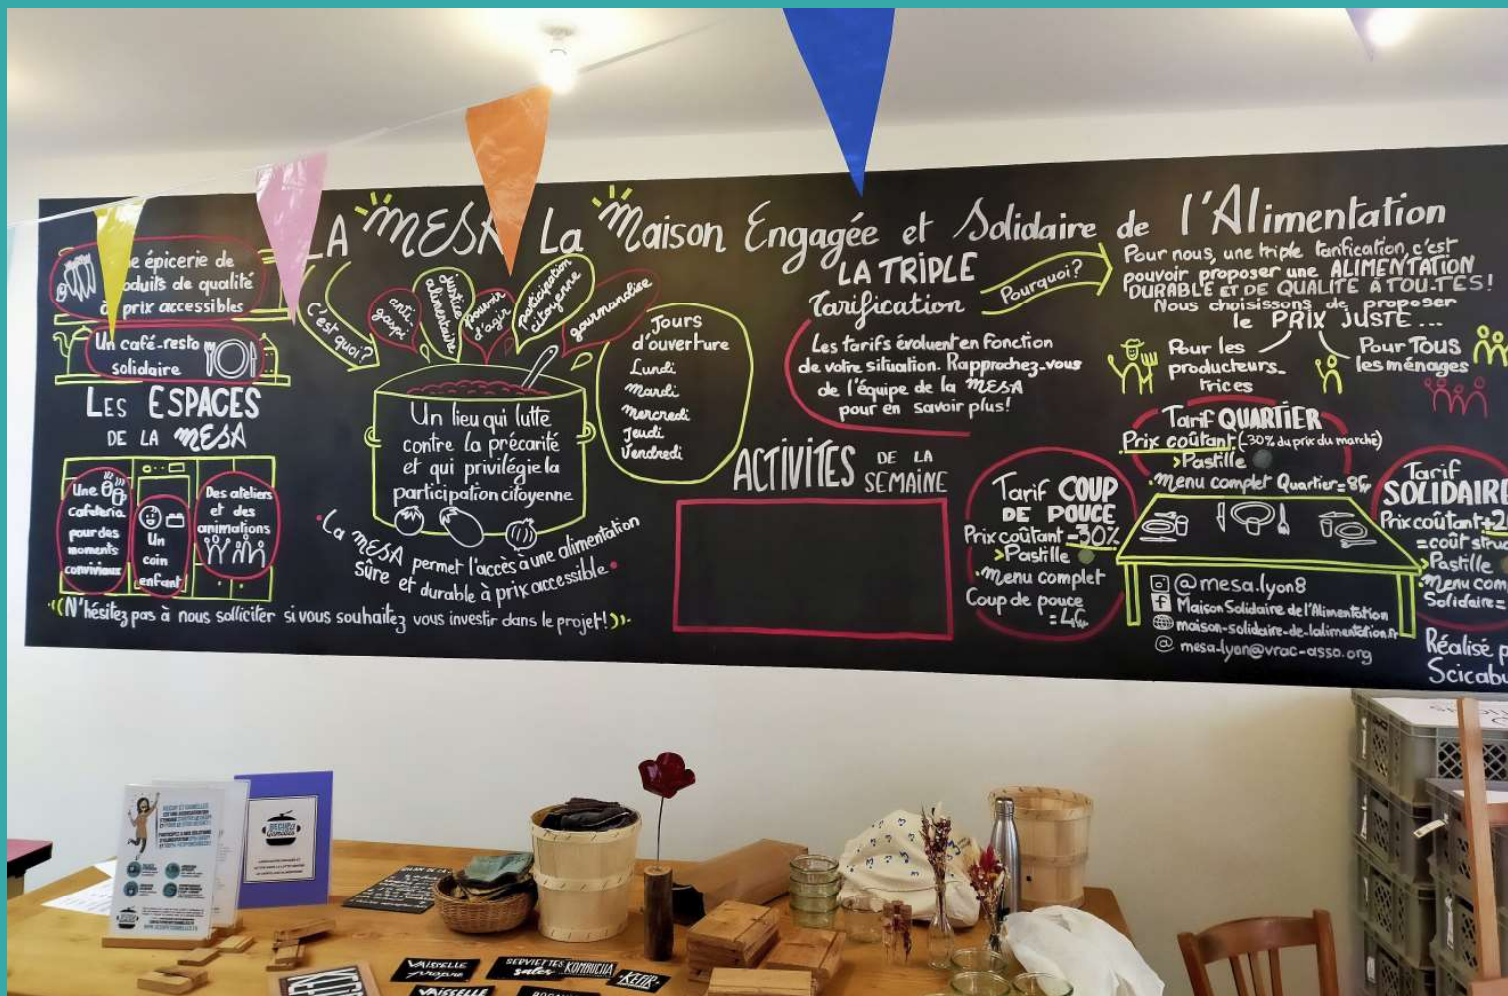 LA MESA La Maison Engagée et Solidaire de l'Alimentation
épicerie de
produits de qualité
à prix accessibles
Un café-resto
solidaire
LES ESPACES
DE LA MESA
Une
Cafeteria
pour des
moments
conviviaux
Un
coin
enfant
Des ateliers
et des
animations
C'est quoi?
anti-
gaspi
justice
alimentaire
pouvoir
d'agir
participation
citoyenne
gourmandise
Un lieu qui lutte
contre la précarité
et qui privilégie la
participation citoyenne
• La MESA permet l'accès à une alimentation
sûre et durable à prix accessible •
N'hésitez pas à nous solliciter si vous souhaitez vous investir dans le projet!
Jours
d'ouverture
Lundi
Mardi
Mercredi
Jeudi
Vendredi
LA TRIPLE
Tarification
Les tarifs évoluent en fonction
de votre situation. Rapprochez-vous
de l'équipe de la MESA
pour en savoir plus!
Pourquoi?
Pour nous, une triple tarification c'est
pouvoir proposer une ALIMENTATION
DURABLE ET DE QUALITÉ À TOU.TES!
Nous choisissons de proposer
le PRIX JUSTE...
Pour les
producteurs-
trices
Pour TOUS
les ménages
ACTIVITES DE LA
SEMAINE
Tarif COUP
DE POUCE
Prix coûtant -30%
>Pastille
•Menu complet
Coup de pouce
=4€
Tarif QUARTIER
Prix coûtant (-30% du prix du marché)
>Pastille
•Menu complet Quartier=8€
Tarif
SOLIDAIRE
Prix coûtant+2
=coût struc
>Pastille
•Menu com
Solidaire=
@mesa.lyon8
Maison Solidaire de l'Alimentation
maison-solidaire-de-lalimentation.fr
@ mesa-lyon@vrac-asso.org
Réalisé p
Scicabu
RÉCUP ET GAMELLES
RÉCUP &
Gamelles
VAISSELLE
propre
SERVIETTES
sales
KOMBUCHA
KEFIR
VAISSELLE